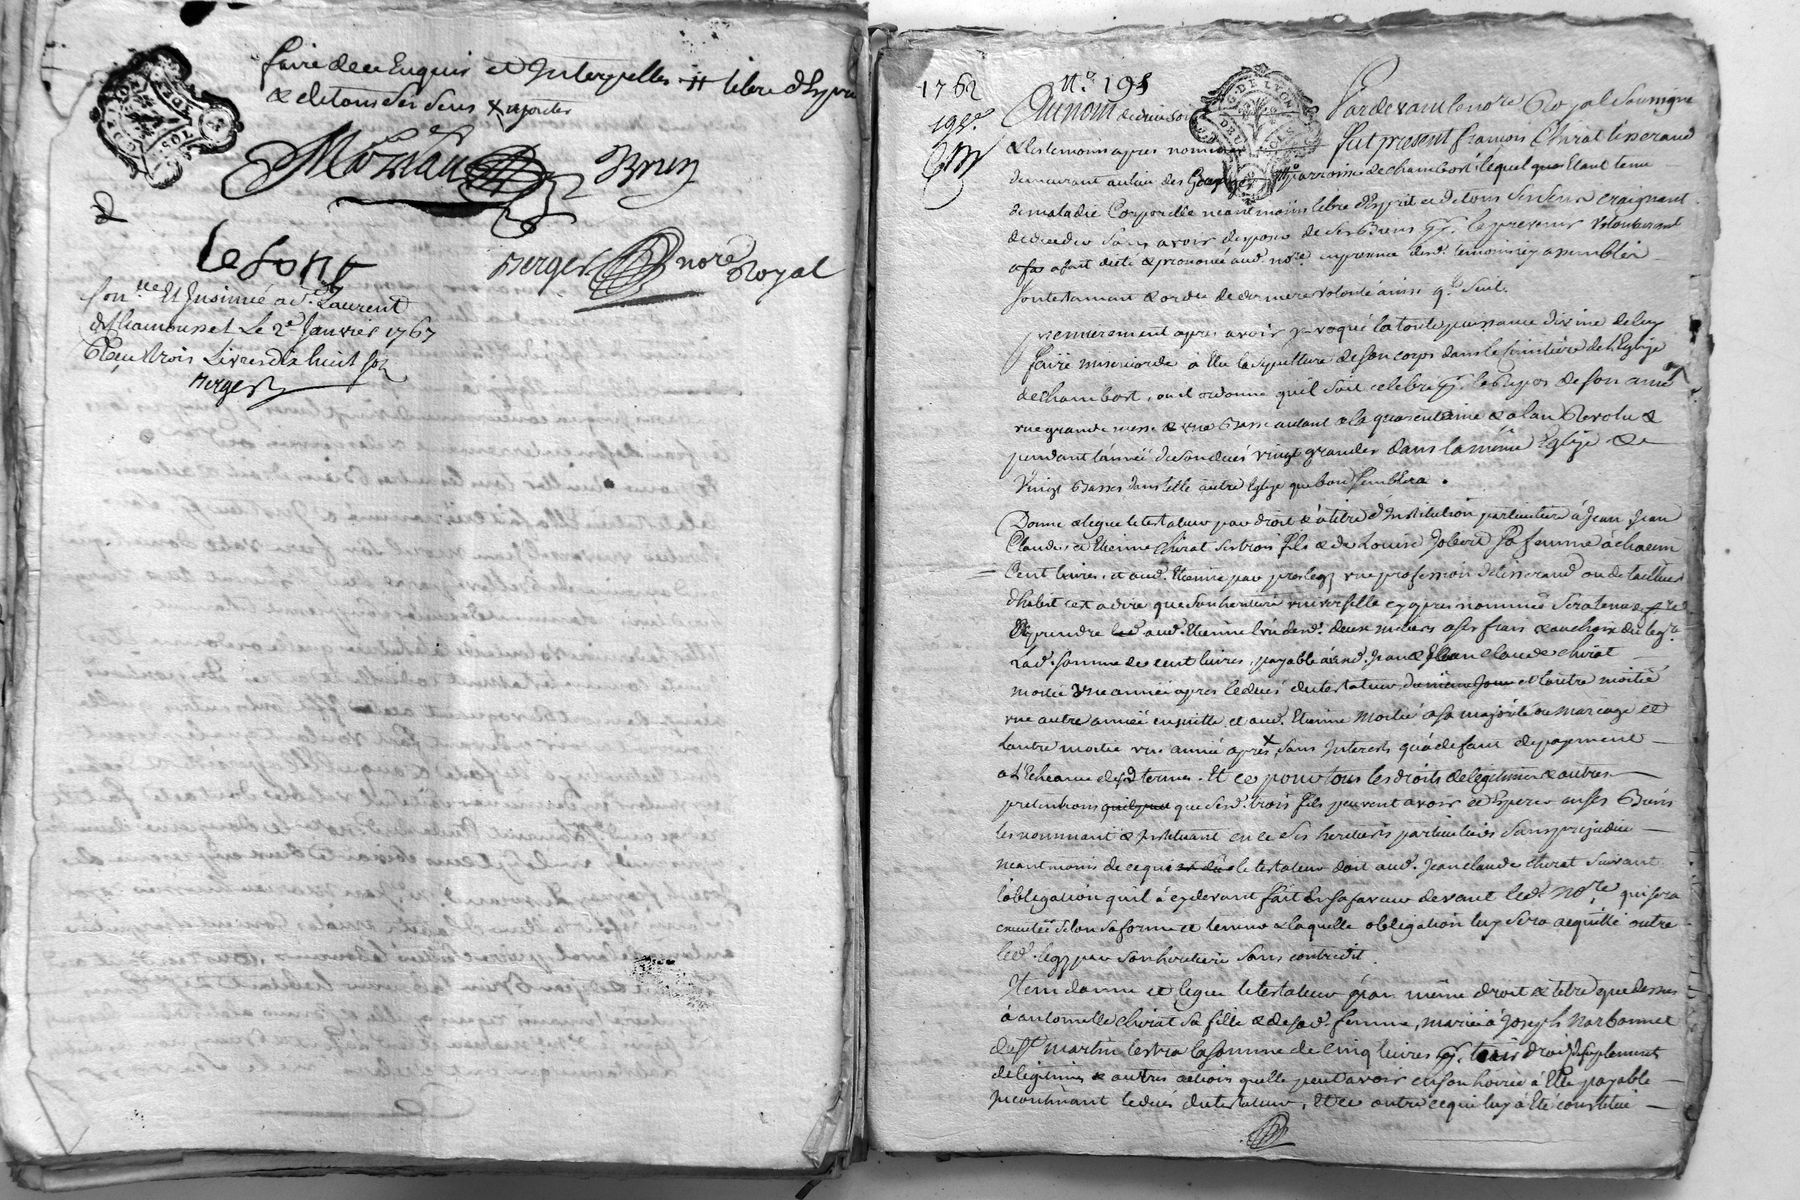 faire de ce Enquis et Interpellés # libre d'Esprit
& de tous ses sens x ajouter
Moreau Brun
Lafont
Berger nore Royal
Con.lle Et Insinué a St. Laurent
de Chamousset Le 2e Janvier 1767
Reçu trois Livres dix huit sols
Berger
1762 No. 195
GÉN. DE LYON
DEUX SOLS
195e
Au nom de dieu soit Pardevant le nore Royal Soussigné
& les temoins apres nommés fut present françois Chirat tisserand
demeurant au lieu des parroisse de chambost, lequel quoi Etant tenu
de maladie Corporelle neantmoins libre d'Esprit et de tous ses sens craignant
de deceder sans avoir disposé de ses Biens pr. le prevenir volontairement
a fait & dicté & prononcé aud. nore. en presence desd. temoins icy assemblés
son testament & ordre de derniere volonté ainsi q. suit.
premierement apres avoir invoqué la toute puissance divine de luy
faire misericorde à Elu la sepulture de son corps dans le cimetière de l'Eglise
de chambost, ou il ordonne quil soit celebré pr. le Repos de son ame
une grande messe & une Basse autant a la quarentaine & a l'an Revolu &
pendant l'année de son decés vingt grandes dans la même Eglise &
vingt Basses dans telle autre Eglise que bon semblera.
Donne & legue le testateur par droit & à titre d'Institution particuliere à Jean, Jean
Claude, et Etienne Chirat ses trois fils & de Louise Joleost sa femme à chacun
Cent livres, et aud. Etienne par preleg une profession de tisserand ou de tailleur
d'habit cest a dire que son heritiere universelle cy apres nommée sera tenue de fre
aprendre aud. Etienne l'un desd. deux metiers a ses frais & au choix du legre.
Lad. somme de cent livres, payable auxd. Jean & Jean Claude Chirat
moitié une année apres le decés du testateur, et l'autre moitié
une autre année ensuitte et aud. Etienne moitié a sa majorité ou mariage et
l'autre moitié une année après x, sans Interests qu'à defaut de payement
a l'Echeance desd. termes. Et ce pour tous les droits de legitimes & autres
pretentions que sesd. trois fils peuvent avoir et Esperer en ses Biens
les nommant & Instituant en ce ses heritiers particuliers sans prejudice
neantmoins de ce que le testateur doit aud. Jean Claude Chirat suivant
l'obligation quil à cy devant fait En sa faveur devant led. Nore, qui sera
executée selon sa forme et teneur & laquelle obligation luy sera acquittée outre
led. legs par son heritiere sans contredit.
Item donne et legue le testateur par même droit & titre que dessus
à antoinette Chirat sa fille & de sad. femme, mariée à Joseph Narbonnet
de St. martin lestra la somme de cinq livres pr. tous droits de suplement
de legitimes & autres actions quelle peut avoir en son hoirie à Elle payable
Incontinant le decés du testateur, Et ce outre ce qui luy à Eté constitué